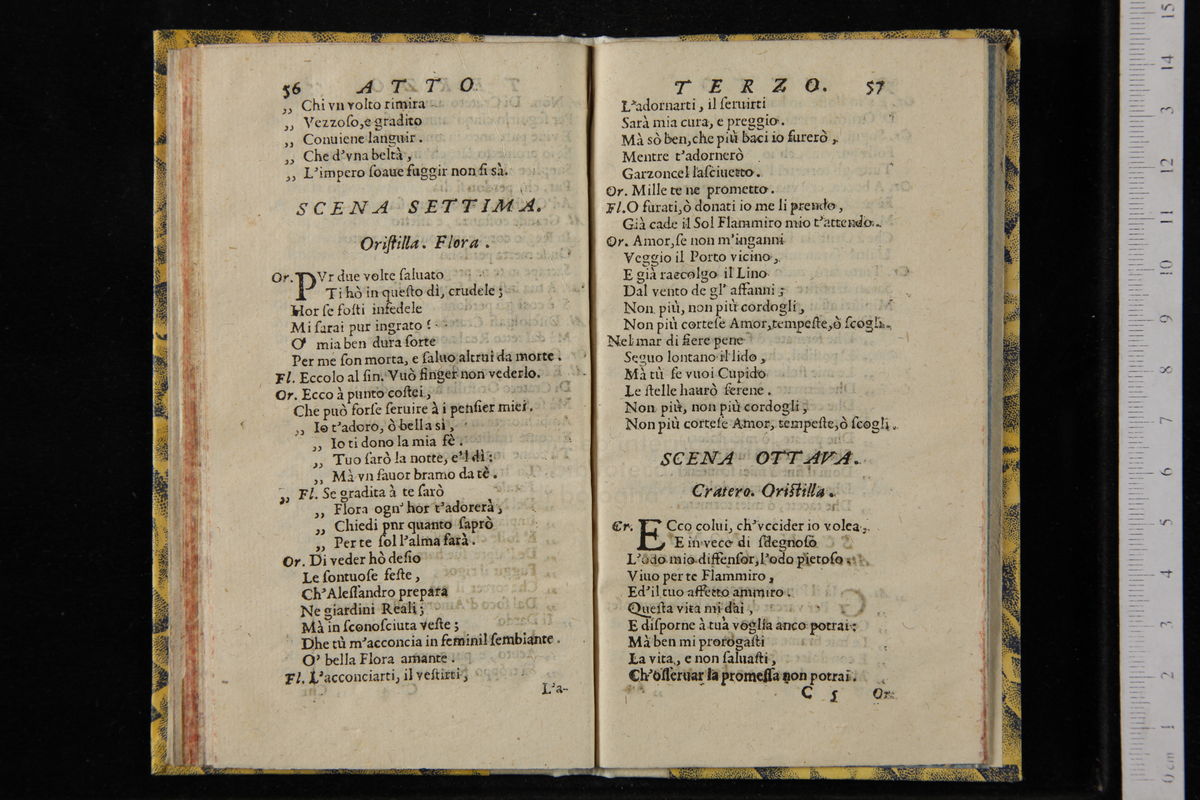 56 ATTO
„ Chi vn volto rimira
„ Vezzoſo,e gradito
„ Conuiene languir.
„ Che d'vna beltà,
„ L'impero ſoaue fuggir non ſi sà.
SCENA SETTIMA.
Oriſtilla. Flora.
Or. PVr due volte ſaluato
Ti hò in queſto dì, crudele;
Hor ſe foſti infedele
Mi ſarai pur ingrato?
O' mia ben dura ſorte
Per me ſon morta, e ſaluo altrui da morte.
Fl. Eccolo al fin. Vuò finger non vederlo.
Or. Ecco à punto coſtei,
Che può forſe ſeruire à i penſier miei.
„ Io t'adoro, ò bella sì,
„ Io ti dono la mia fè.
„ Tuo ſarò la notte, e'l dì;
„ Mà vn fauor bramo da tè.
„ Fl. Se gradita à te ſarò
„ Flora ogn' hor t'adorerà,
„ Chiedi pnr quanto ſaprò
„ Per te ſol l'alma farà.
Or. Di veder hò deſio
Le ſontuoſe feſte,
Ch'Aleſſandro prepara
Ne giardini Reali;
Mà in ſconoſciuta veſte;
Dhe tù m'acconcia in feminil ſembiante.
O' bella Flora amante.
Fl. L'acconciarti, il veſtirti,
L'a-
TERZO. 57
L'adornarti, il ſeruirti
Sarà mia cura, e preggio.
Mà sò ben,che più baci io furerò,
Mentre t'adornerò
Garzoncel laſciuetto.
Or. Mille te ne prometto.
Fl.O furati,ò donati io me li prendo,
Già cade il Sol Flammiro mio t'attendo.
Or. Amor,ſe non m'inganni
Veggio il Porto vicino,
E già raccolgo il Lino
Dal vento de gl' affanni;
Non più, non più cordogli,
Non più corteſe Amor,tempeſte,ò ſcogli.
Nel mar di fiere pene
Seguo lontano il lido,
Mà tù ſe vuoi Cupido
Le ſtelle haurò ſerene.
Non più, non più cordogli,
Non più corteſe Amor, tempeſte,ò ſcogli.
SCENA OTTAVA.
Cratero. Oriſtilla.
Cr. ECco colui, ch'vccider io volea,
E in vece di ſdegnoſo
L'odo mio diffenſor,l'odo pietoſo
Viuo per te Flammiro,
Ed'il tuo affetto ammiro.
Queſta vita mi dai,
E diſporne à tuà voglia anco potrai;
Mà ben mi prorogaſti
La vita, e non ſaluaſti,
Ch'oſſeruar la promeſſa non potrai.
C 5 Or.
0 cm 1 2 3 4 5 6 7 8 9 10 11 12 3 14 15